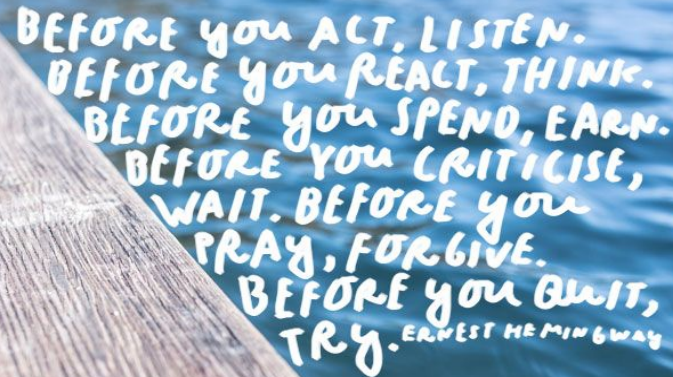 BEFORE you ACT, LISTEN.
BEFORE you REACT, THINK.
BEFORE you SPEND, EARN.
BEFORE you CRITICISE,
WAIT. BEFORE you
PRAY, FORGIVE.
BEFORE you QUIT,
TRY. ERNEST HEMINGWAY